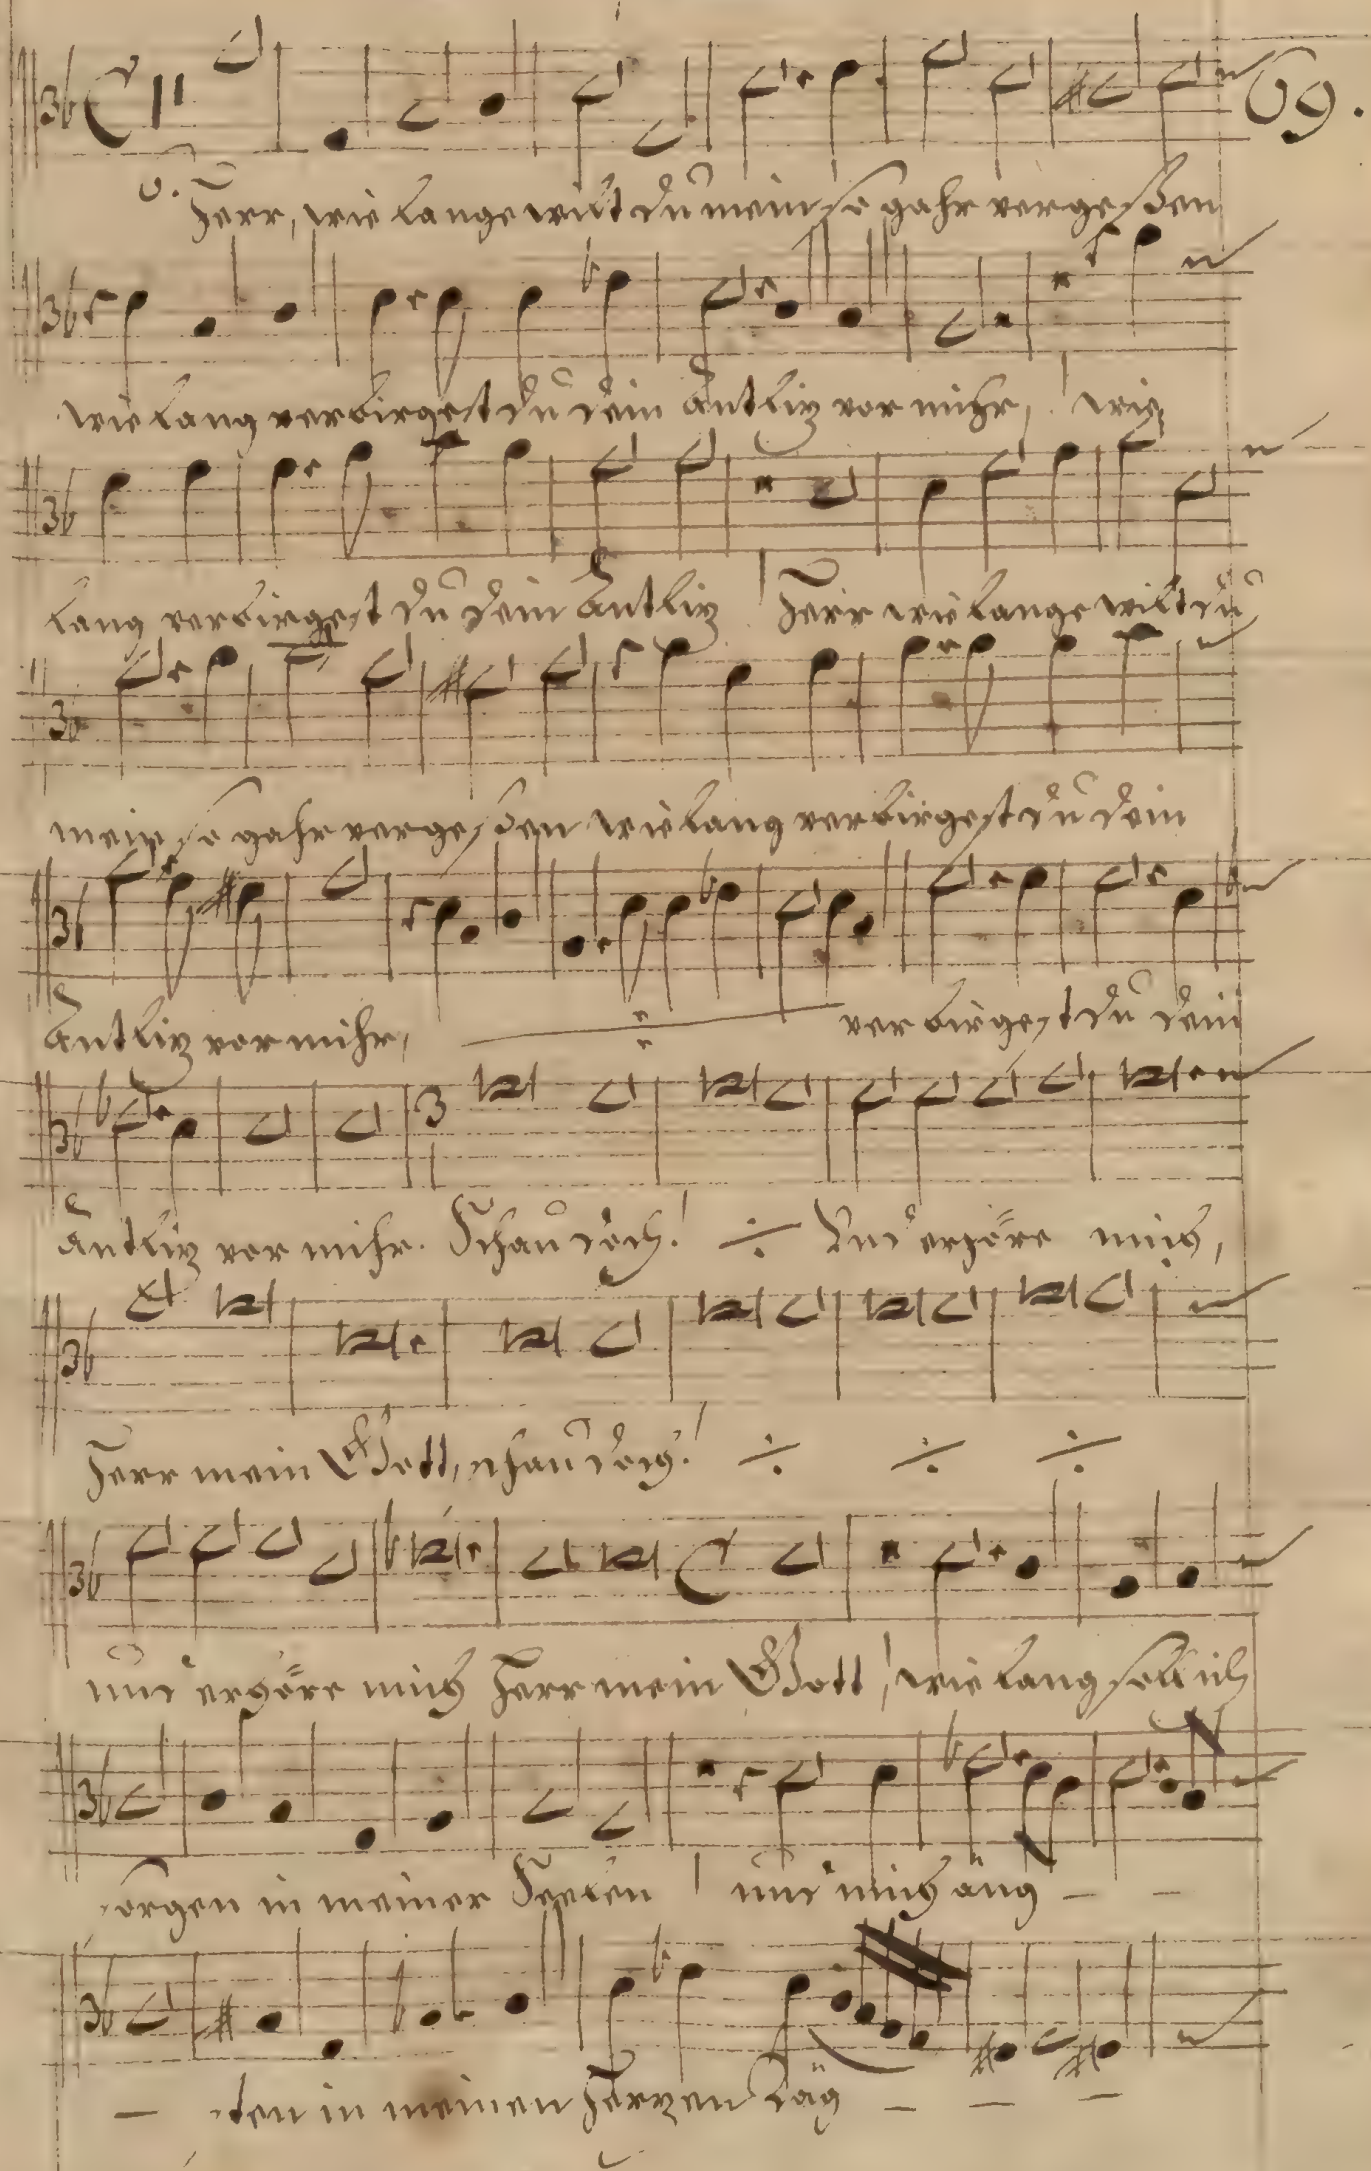 69.
Herr, wie lange wilt du mein so gahr vergeßen
wie lang verbirgest du dein Antliz vor mihr, wie
lang verbirgest du dein Antliz Herr wie lange wilt du
mein so gahr vergeßen wie lang verbirgest du dein
Antliz vor mihr, verbirgest du dein
Antliz vor mihr. Schau doch! Und erhöre mich,
Herr mein Gott, schau doch!
und erhöre mich Herr mein Gott, wie lang soll ich
sorgen in meiner Seelen und mich äng - -
- sten in meinen Herzen täg - - -